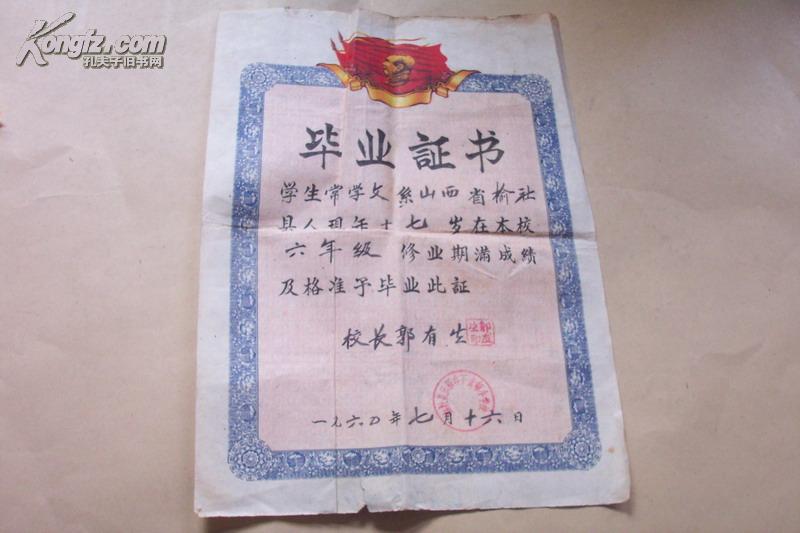 Kongfz.com
孔夫子旧书网
毕业証书
学生常学文系山西省榆社
县人现年十七岁在本校
六年级修业期满成绩
及格准予毕业此証
校长郭有生
一九六〇年七月十六日